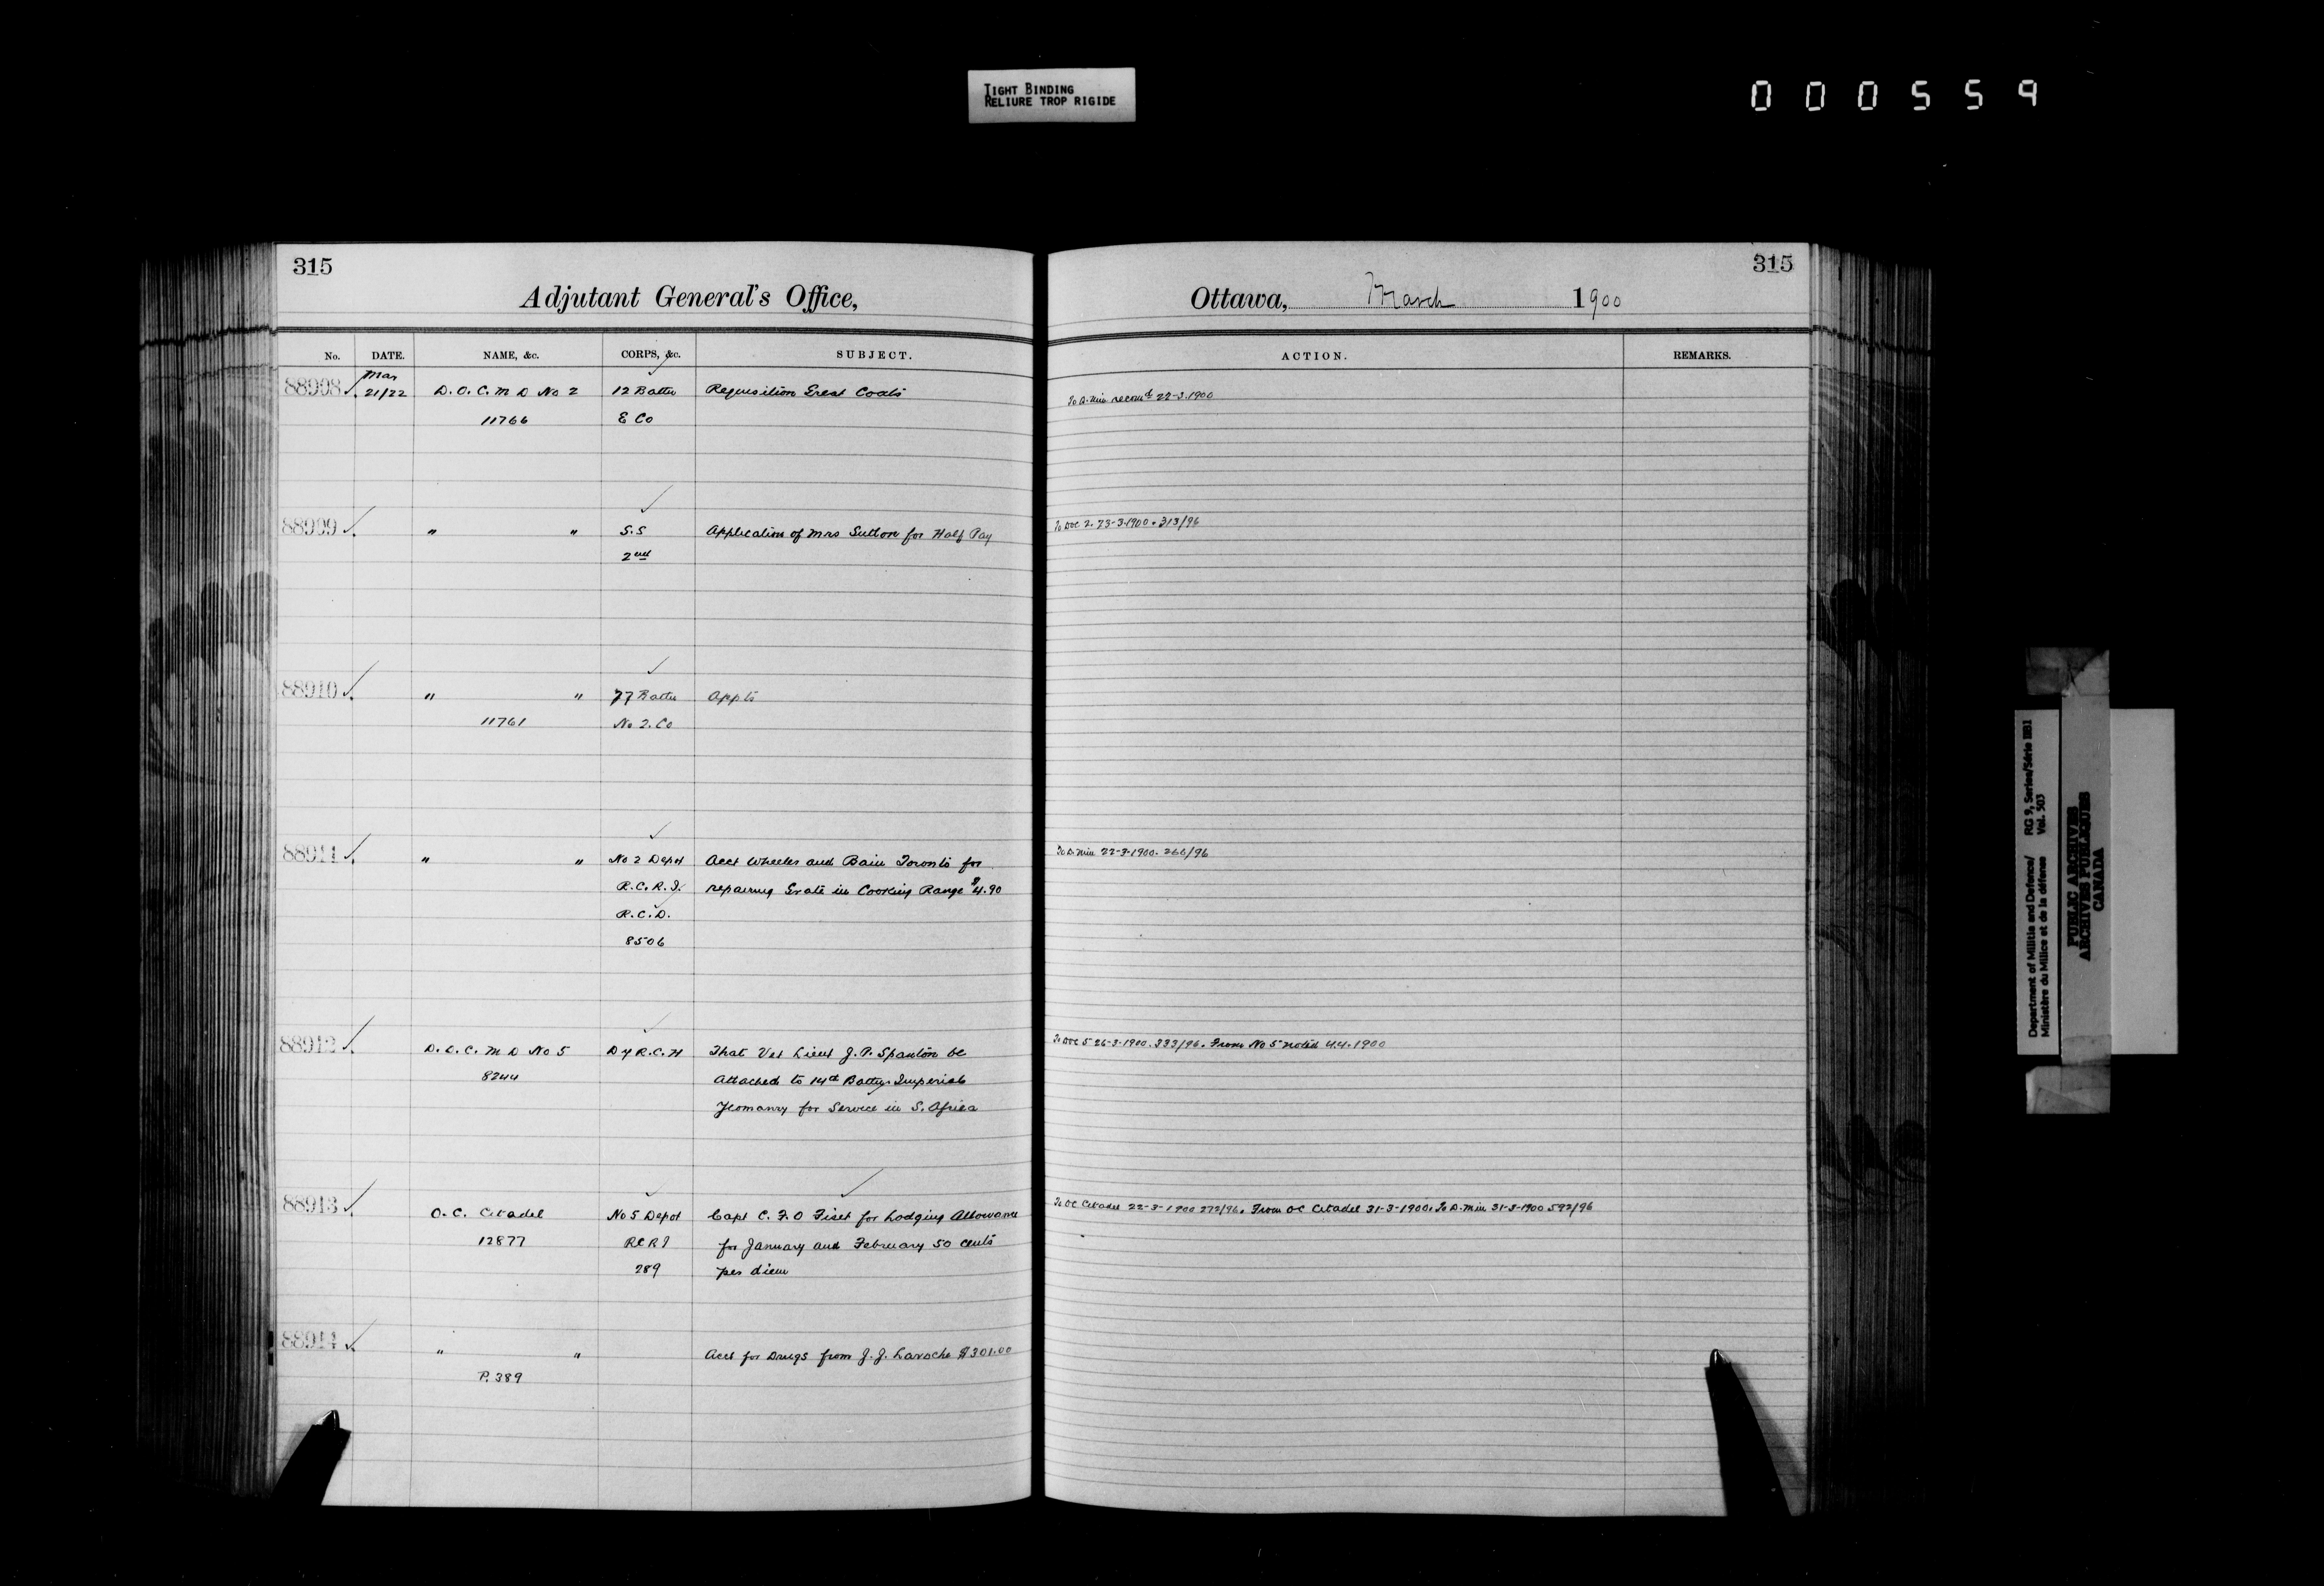 TIGHT BINDING
RELIURE TROP RIGIDE
000559
315
Adjutant General's Office,
No. DATE. NAME, &c. CORPS, &c. SUBJECT.
88908 Mar 21/22 D.O.C. M D No 2 12 Battn Requisition Great Coats
11766 E Co
88909 " " S.S Application of Mrs Sutton for Half Pay
2nd
88910 " " 77 Battn Appts
11761 No 2. Co
88911 " " No 2 Depot Acct Wheeler and Bain Toronto for
R.C.R.I. repairing Grate in Cooking Range $4.90
R.C.D.
8506
88912 D.O.C. M D No 5 D Y R.C.H That Vet Lieut J.P. Spanton be
8244 Attached to 14th Batty. Imperial
Yeomanry for Service in S. Africa
88913 O.C. Citadel No 5 Depot Capt C. F. O Fiset for Lodging Allowance
12877 RCRI for January and February 50 cents
289 per diem
88914 " " Acct for Drugs from J.J. Laroche $301.00
P. 389
315
Ottawa, March 1900
ACTION. REMARKS.
To D. Min recomd 22-3-1900
To DOC 2. 23-3-1900. 313/96
To D. Min 22-3-1900. 266/96
To DOC 5 26-3-1900. 333/96. From No 5 noted 4.4.1900
To OC Citadel 22-3-1900 272/96. From OC Citadel 31-3-1900. To D. Min 31-3-1900 592/96
Department of Militia and Defence/ RG 9, Series/Série IIB1
Ministère du Milice et de la défence Vol. 503
PUBLIC ARCHIVES
ARCHIVES PUBLIQUES
CANADA